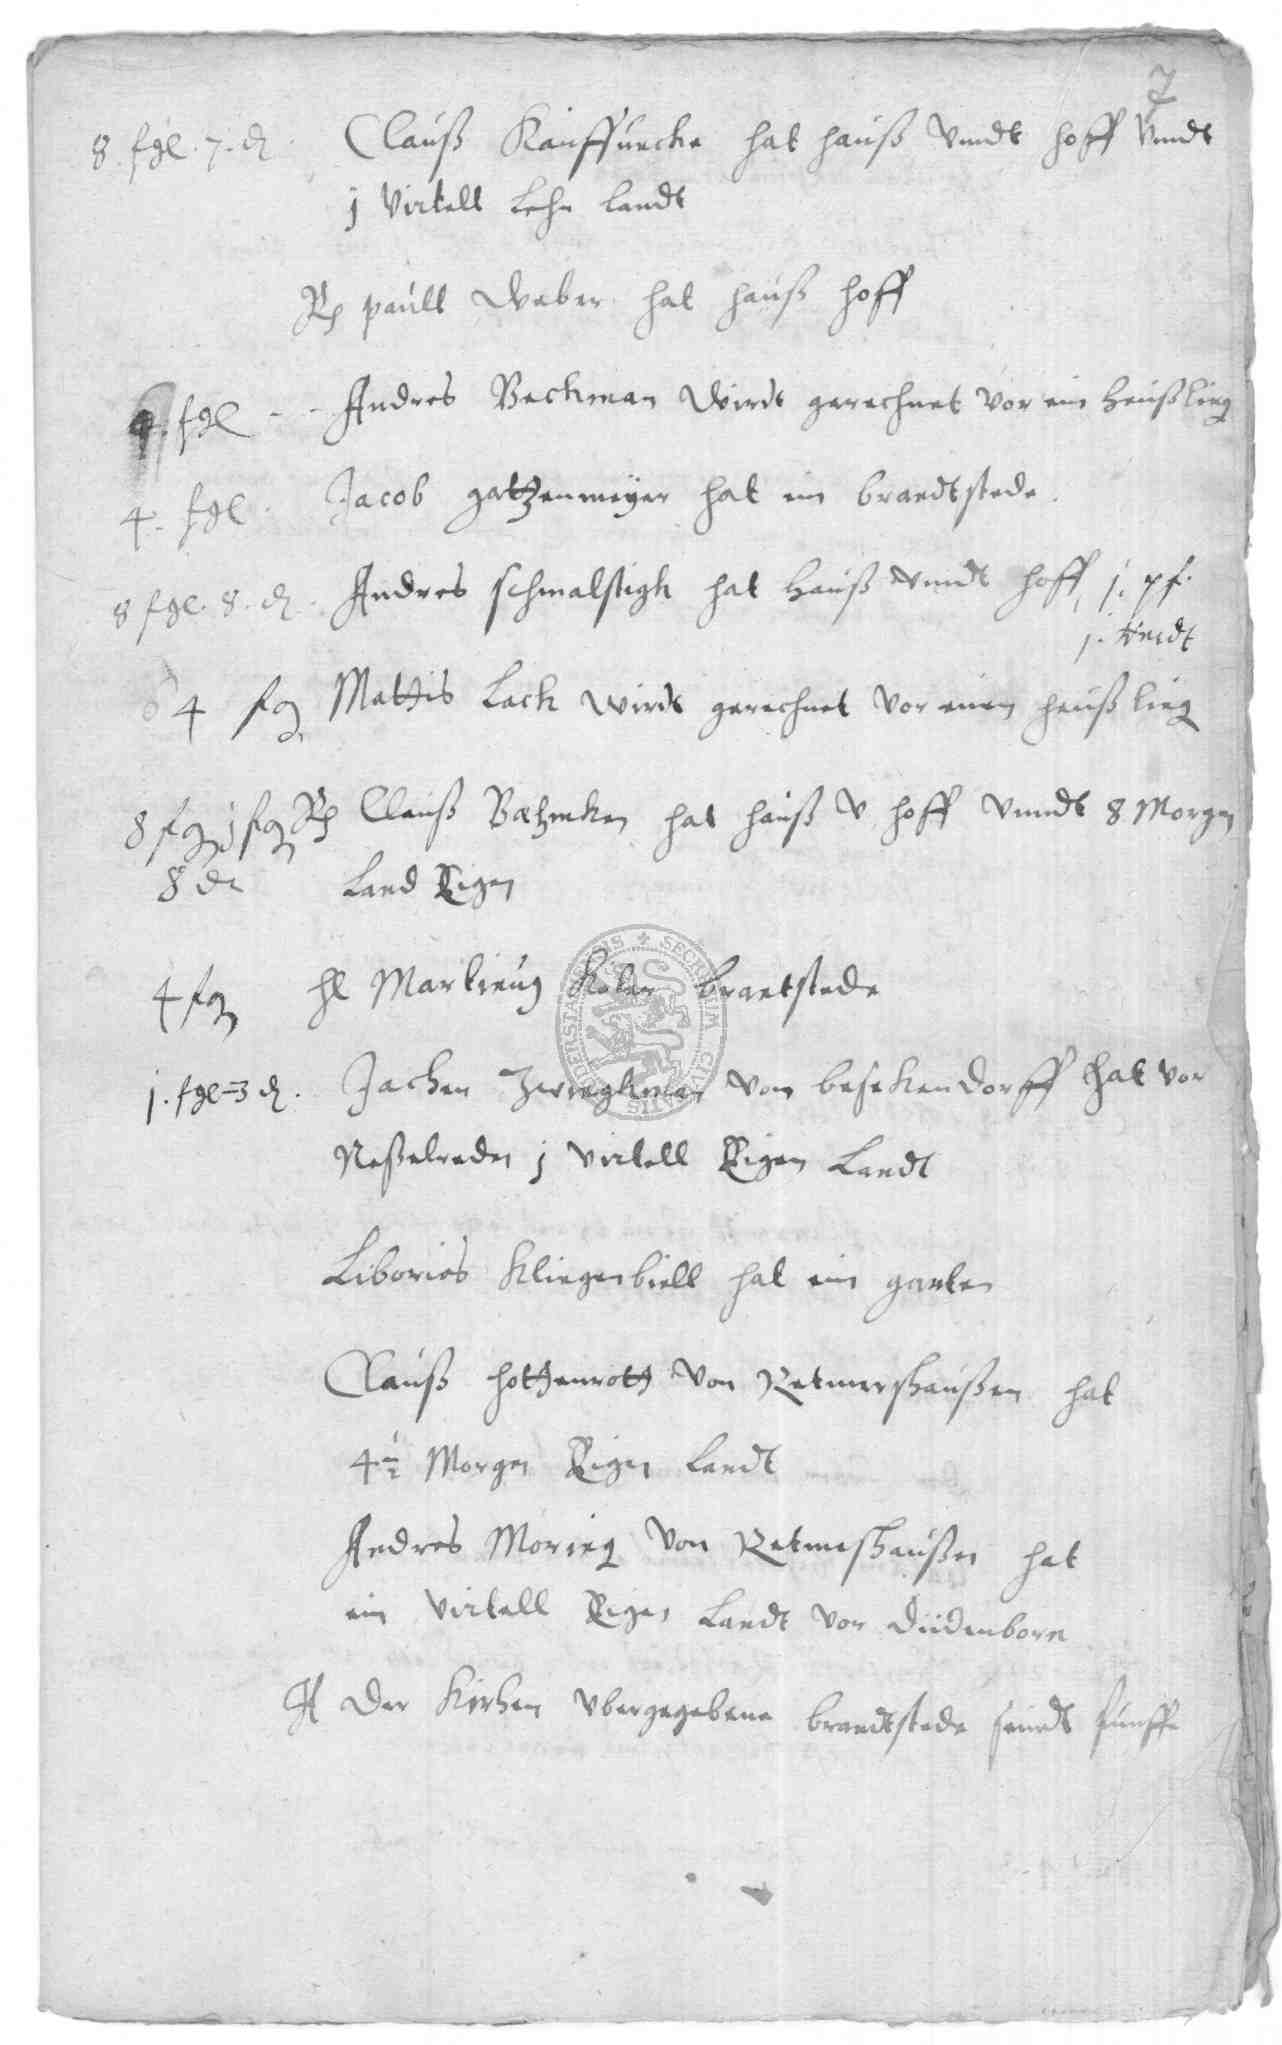 7
8. fgl. 7. d. Clauß Kauffuncke hat hauß vndt hoff vndt
j virtell Lehn landt
paull Weber hat hauß hoff
4. fgl - - Andres Beckman wirdt gerechnet vor ein heußling
4. fgl. Jacob gatzenmeyer hat ein brandtstede.
8 fgl. 8. d. Andres schmalstigk hat hauß vndt hoff, j. pf.
4 fg Mattis Lack wirdt gerechnet vor einen heußling
8 fg j fg Clauß Bæhmken hat hauß v hoff vnndt 8 Morgen
8 d Land Eigen
4 fg Martinus Köler brantstede
j. fgl - 3 d. Jachen Zwingkman von besekendorff hat vor
Neßelreden j virtell Eigen Landt
Liborios Klingenbiell hat ein garten
Clauß hottenrott von Retmershaußen hat
4 1/2 Morgen Eigen Landt
Andres Moring von Retmeshaußen hat
ein virtell Eigen Landt vor Düdenborn
Der Kirhen vbergegebene brandtstede seindt funffe